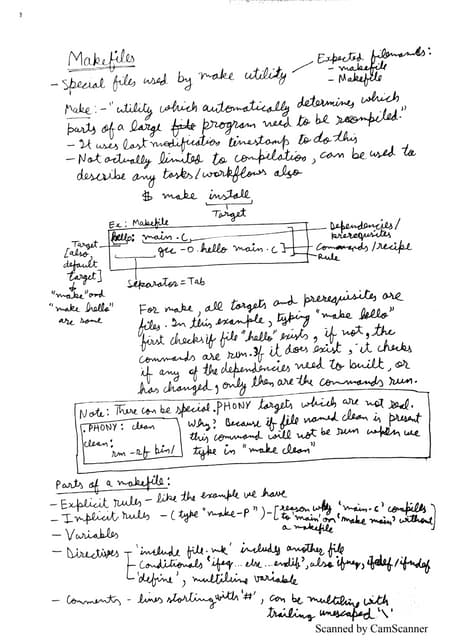 Makefiles
Expected filenames:
- makefile
- Makefile
- Special files used by make utility
Make:- "utility which automatically determines which
parts of a large file program need to be recompiled."
- It uses last modification timestamp to do this
- Not actually limited to compilation, can be used to
describe any tasks/workflows also
$ make install
Target
Ex: Makefile
hello: main.c
gcc -o hello main.c
Dependencies/
prerequisites
Commands/recipe
Rule
Target
[also,
default
target]
"make" and
"make hello"
are same
Separator = Tab
For make, all targets and prerequisites are
files. In this example, typing "make hello"
first checks if file "hello" exists, if not, the
commands are run. If it does exist, it checks
if any of the dependencies need to built, or
has changed, only then are the commands run.
Note: There can be special .PHONY targets which are not real.
.PHONY: clean
clean:
rm -rf bin/
Why? Because if file named clean is present
this command will not be run when we
type in "make clean"
Parts of a makefile:
- Explicit rules - like the example we have
- Implicit rules - (type "make -p") - [reason why 'main.c' compiles
to 'main' on 'make main' without
a makefile
- Variables
- Directives - 'include file.mk' includes another file
- Conditionals 'ifeq... else... endif', also ifneq, ifdef/ifndef
- 'define', multiline variable
- Comments - lines starting with '#', can be multiline with
trailing unescaped '\'
Scanned by CamScanner